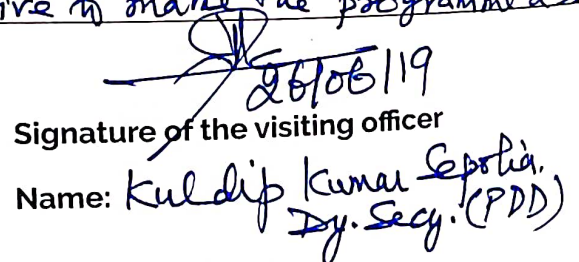 to make the programme
26/06/19
Signature of the visiting officer
Name: Kuldip Kumar Sepolia.
Dy. Secy. (PDD)